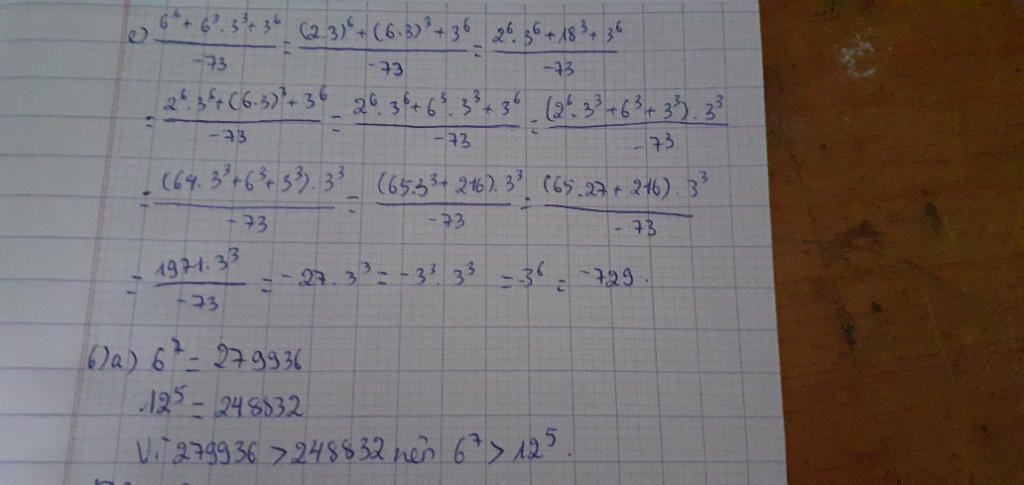 e) (6^6 + 6^3 . 3^3 + 3^6)/(-73) = ((2.3)^6 + (6.3)^3 + 3^6)/(-73) = (2^6 . 3^6 + 18^3 + 3^6)/(-73)
= (2^6 . 3^6 + (6.3)^3 + 3^6)/(-73) = (2^6 . 3^6 + 6^3 . 3^3 + 3^6)/(-73) = ((2^6 . 3^3 + 6^3 + 3^3) . 3^3)/(-73)
= ((64 . 3^3 + 6^3 + 3^3) . 3^3)/(-73) = ((65.3^3 + 216) . 3^3)/(-73) = ((65.27 + 216) . 3^3)/(-73)
= (1971 . 3^3)/(-73) = -27 . 3^3 = -3^3 . 3^3 = -3^6 = -729.
6)a) 6^7 = 279936
12^5 = 248832
Vì 279936 > 248832 nên 6^7 > 12^5.